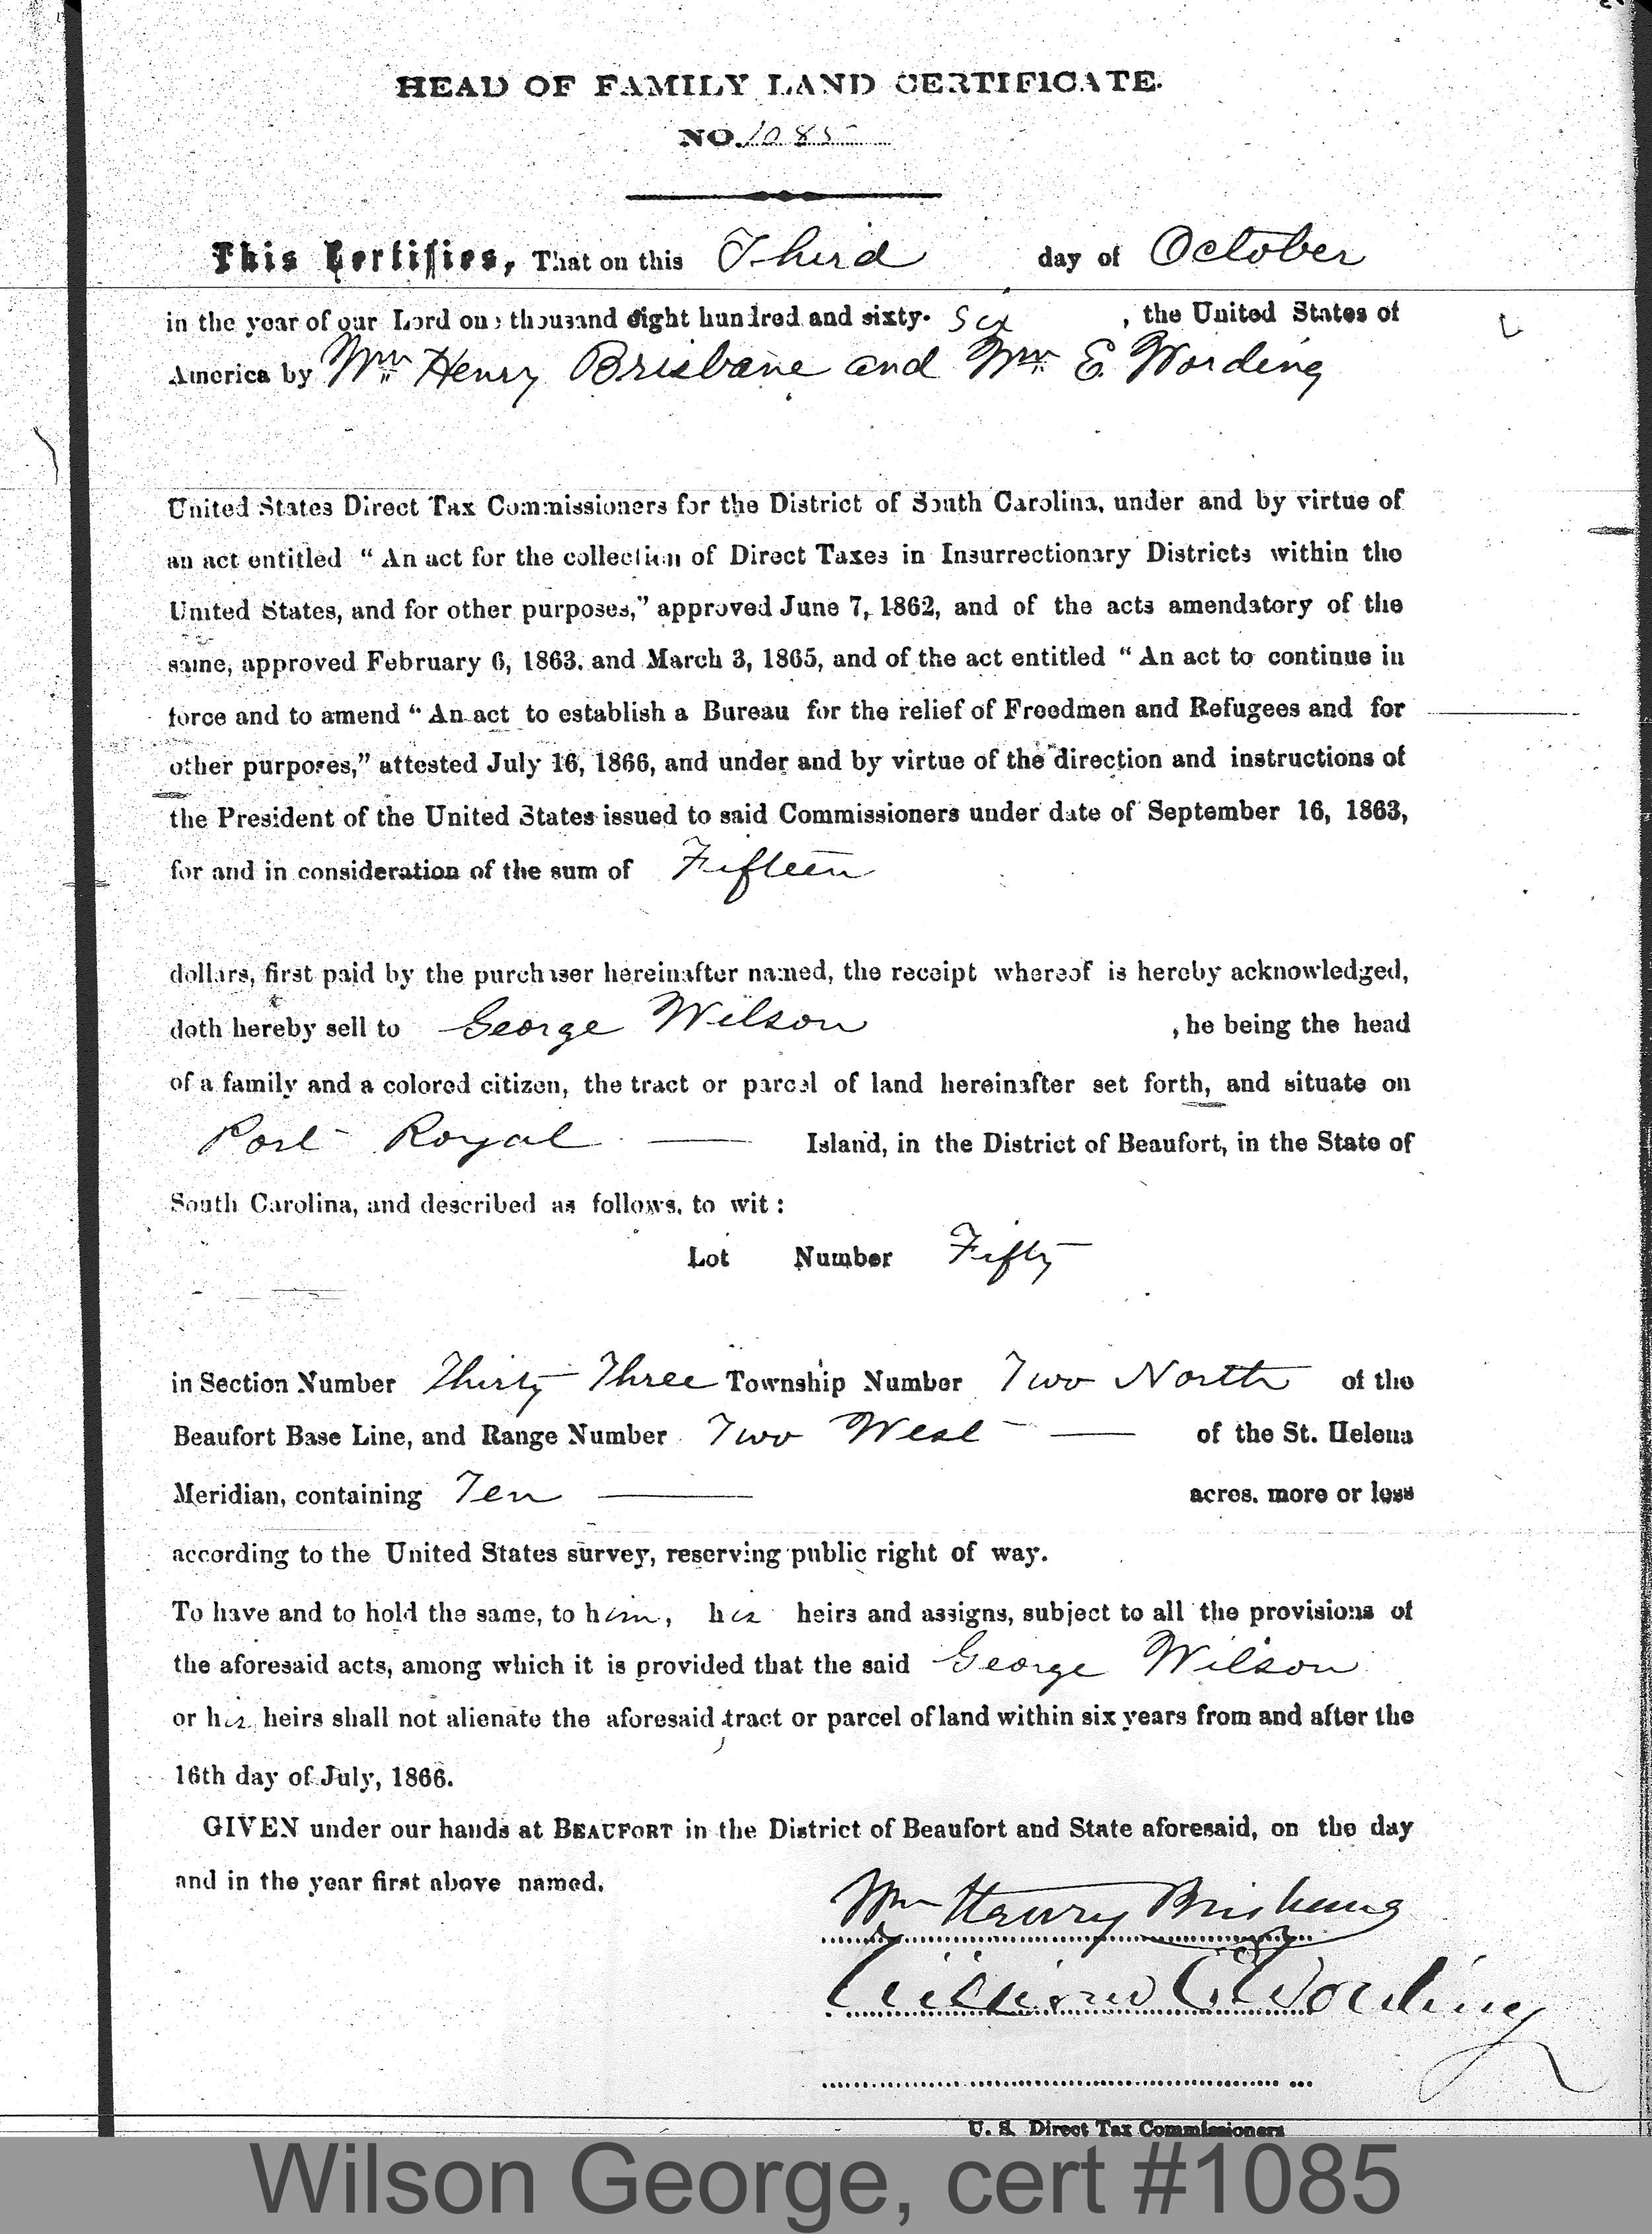 HEAD OF FAMILY LAND CERTIFICATE.
NO. 1085
This Certifies, That on this Third day of October
in the year of our Lord one thousand eight hundred and sixty- six , the United States of
America by Wm Henry Brisbane and Wm E. Wording
United States Direct Tax Commissioners for the District of South Carolina, under and by virtue of
an act entitled “ An act for the collection of Direct Taxes in Insurrectionary Districts within the
United States, and for other purposes,” approved June 7, 1862, and of the acts amendatory of the
same, approved February 6, 1863. and March 3, 1865, and of the act entitled “ An act to continue in
force and to amend “ An act to establish a Bureau for the relief of Freedmen and Refugees and for
other purposes,” attested July 16, 1866, and under and by virtue of the direction and instructions of
the President of the United States issued to said Commissioners under date of September 16, 1863,
for and in consideration of the sum of Fifteen
dollars, first paid by the purchaser hereinafter named, the receipt whereof is hereby acknowledged,
doth hereby sell to George Wilson , he being the head
of a family and a colored citizen, the tract or parcel of land hereinafter set forth, and situate on
Port Royal — Island, in the District of Beaufort, in the State of
South Carolina, and described as follows, to wit :
Lot Number Fifty
in Section Number Thirty Three Township Number Two North of the
Beaufort Base Line, and Range Number Two West — of the St. Helena
Meridian, containing Ten — acres. more or less
according to the United States survey, reserving public right of way.
To have and to hold the same, to him, his heirs and assigns, subject to all the provisions of
the aforesaid acts, among which it is provided that the said George Wilson
or his heirs shall not alienate the aforesaid tract or parcel of land within six years from and after the
16th day of July, 1866.
GIVEN under our hands at BEAUFORT in the District of Beaufort and State aforesaid, on the day
and in the year first above named.
Wm Henry Brisbane
William E. Wording
U. S. Direct Tax Commissioners
Wilson George, cert #1085